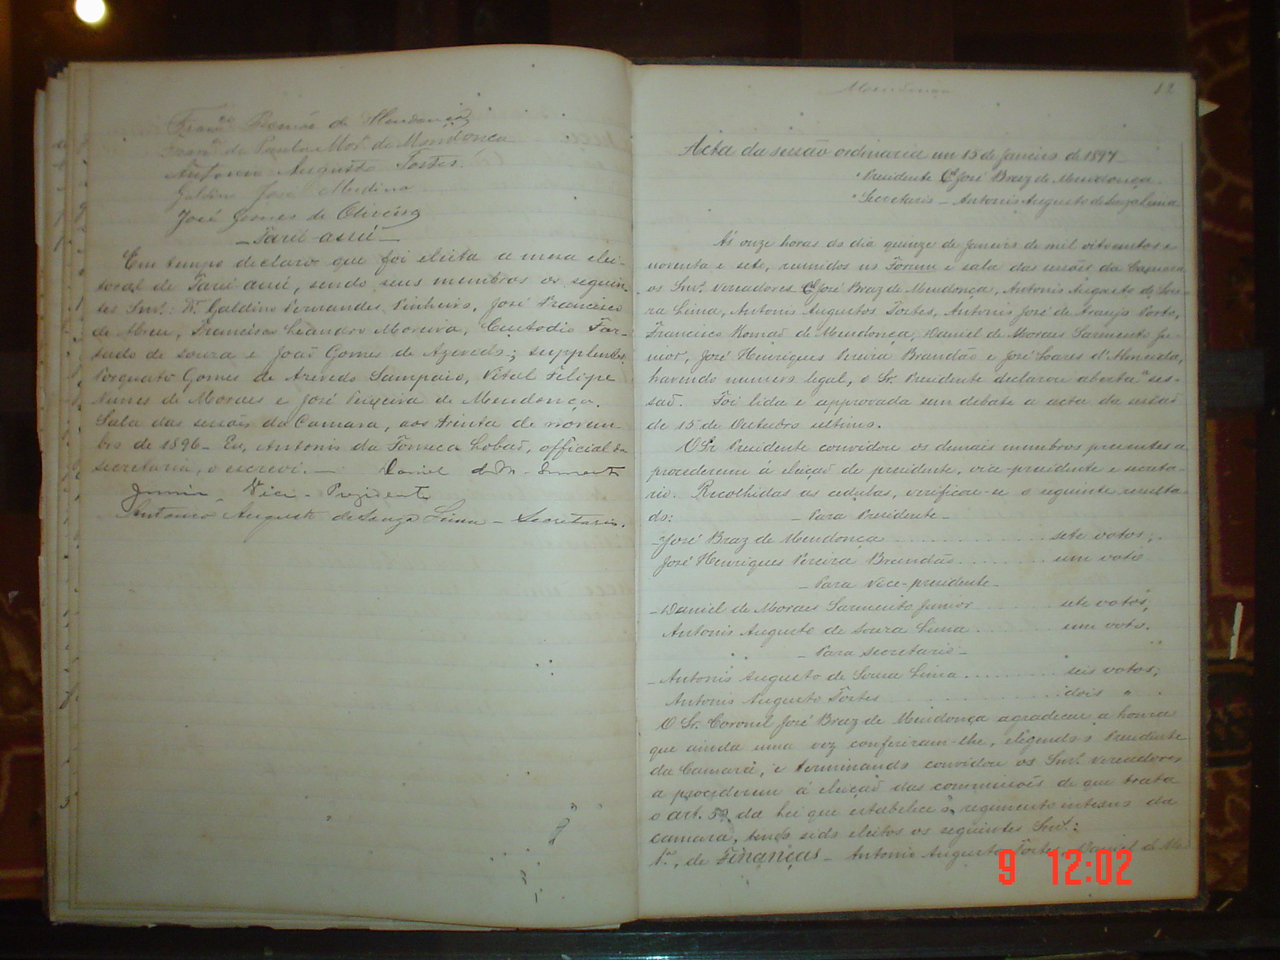 Fran.co Romão de Mendonça
Fran.co de Paula Mor.a de Mendonça
Antonio Augusto Tostes
Galdino José Medina
José Gomes de Oliveira
— Taru-assú —
Em tempo declaro que foi eleita a mesa elei-
toral de Taru-assú, sendo seus membros os seguin-
tes Snrs. Dr. Galdino Fernandes Pinheiro, José Francisco
de Abreu, Francisco Leandro Moreira, Custodio Fur-
tado de Souza e João Gomes de Azevedo; supplentes,
Torquato Gomes de Azevedo Sampaio, Vital Filipe
Nunes de Moraes e José Teixeira de Mendonça.
Sala das sessões da Camara, aos trinta de novem-
bro de 1896. Eu, Antonio da Fonseca Lobão, official da
secretaria, o escrevi. — Daniel de M. Sarmento
Junior, Vice-Prezidente
Antonio Augusto de Souza Lima — Secretario.
Mendonça
12
Acta da sessão ordinaria em 15 de Janeiro de 1897
Presidente Cel José Braz de Mendonça
Secretario — Antonio Augusto de Souza Lima
Ás onze horas do dia quinze de Janeiro de mil oitocentos e
noventa e sete, reunidos no Forum e sala das sessões da Camara
os Snrs. Vereadores Cel José Braz de Mendonça, Antonio Augusto de Sou-
za Lima, Antonio Augustos Tostes, Antonio José de Araujo Porto,
Francisco Romão de Mendonça, Daniel de Moraes Sarmento Ju-
nior, José Henriques Pereira Brandão e José Soares d'Almeida,
havendo numero legal, o Sr. Presidente declarou aberta a ses-
são. Foi lida e approvada sem debate a acta da sessão
de 15 de Outubro ultimo.
O Sr Presidente convidou os demais membros presentes a
procederem á eleição de presidente, vice-presidente e secreta-
rio. Recolhidas as cedulas, verificou-se o seguinte resulta-
do: — Para Presidente —
José Braz de Mendonça .......... sete votos;
José Henriques Pereira Brandão .......... um voto
— Para Vice-presidente —
Daniel de Moraes Sarmento Junior .......... sete votos;
Antonio Augusto de Souza Lima .......... um voto.
— Para Secretario —
Antonio Augusto de Souza Lima .......... seis votos;
Antonio Augusto Tostes .......... dois "
O Sr. Coronel José Braz de Mendonça agradeceu a honra
que ainda uma vez conferiram-lhe, elegendo-o Presidente
da Camara, e terminando convidou os Snrs. Vereadores
a procederem á eleição das commissões de que trata
o art. 59 da lei que estabelece o regimento interno da
camara, tendo sido eleitos os seguintes Snrs.:
1.a, de Finanças — Antonio Augusto Tostes, Daniel de Mo-
9 12:02